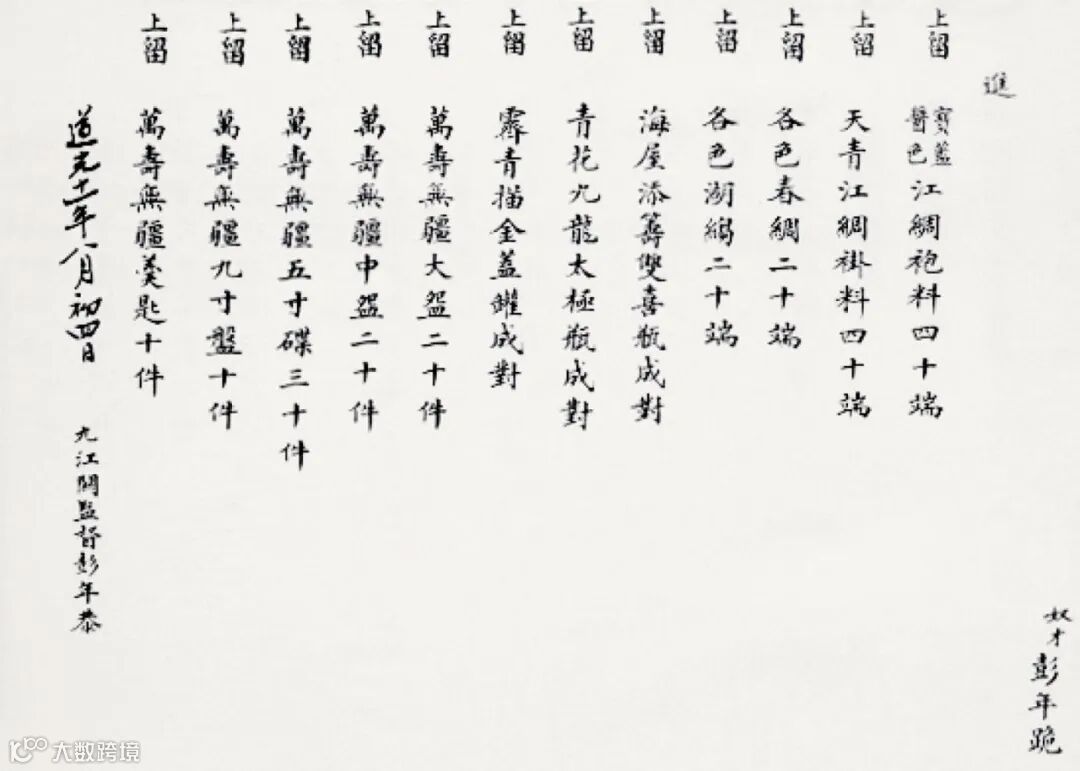 奴才彭年跪
進
上留 寶藍醬色江綢袍料四十端
上留 天青江綢褂料四十端
上留 各色春綢二十端
上留 各色湖縐二十端
上留 海屋添籌雙喜瓶成對
上留 青花九龍太極瓶成對
上留 霽青描金蓋罐成對
上留 萬壽無疆大盌二十件
上留 萬壽無疆中盌二十件
上留 萬壽無疆五寸碟三十件
上留 萬壽無疆九寸盤十件
上留 萬壽無疆羹匙十件
道光十一年八月初四日 九江關監督彭年恭
大数跨境